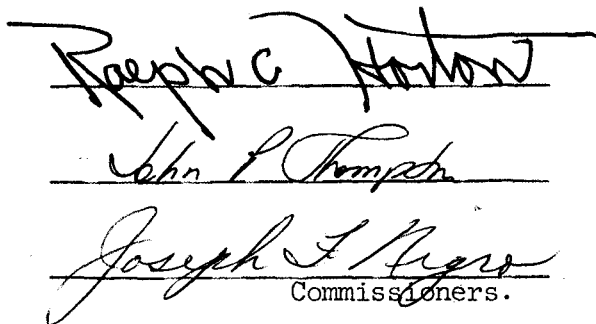 Ralph C Horton
John P Thompson
Joseph F Nigro
Commissioners.